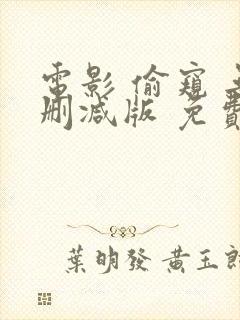 電影 偷窺
刪減版 免費
葉明發 黃玉郎